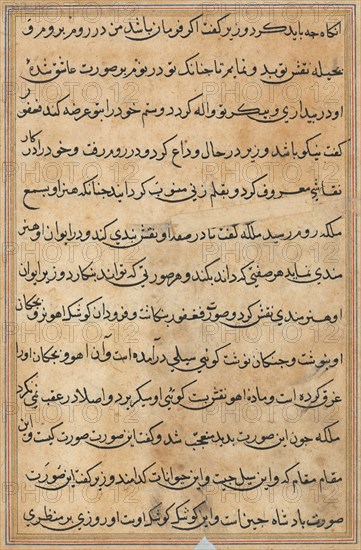 آنگاه چه باید کرد وزیر گفت اگر فرمان باشد من در روم بروم و
بحیله نقش توبه و نمایم تا چنانک تو در نوم بر صورت عاشق شدی
او در بیداری و پیکر تو واله گردد و ستم خود را بتو عرضه کند فغفور
گفت نیکو باشد وزیر در حال وداع کرد و در روم رفت و خود را در کار
نقاشی معروف کرد و بقلم زنی منسوب گردانید چنانکه هنر او بسمع
ملکه روم رسید ملکه گفت تا در صفه او نقش بندی کند و در ایوان او هنر
مندی نماید هر صفتی که داند بکند و هر صورتی که تواند بنگارد وزیر ایوان
او هنرمندی نقش کرد و صورت فغفور بنگاشت و فرود آن کوشک آهو نر و بچگان
او بنوشت و چنان نوشت کوئی سیلی درآمده است و آن آهو و بچگان او را
غرق کرده است و ماده آهو نقش بست کوئی او میگریزد و اصلا در عقب نمی نگرد
ملکه چون این صورت بدید متعجب شد و گفت این صورت صورت کیست و این
مقام مقام که و این سیل چیست و این حیوانات کدامند وزیر گفت این صورت
صورت پادشاه چین است و این کوشک کوشک اوست او روزی بر منظری